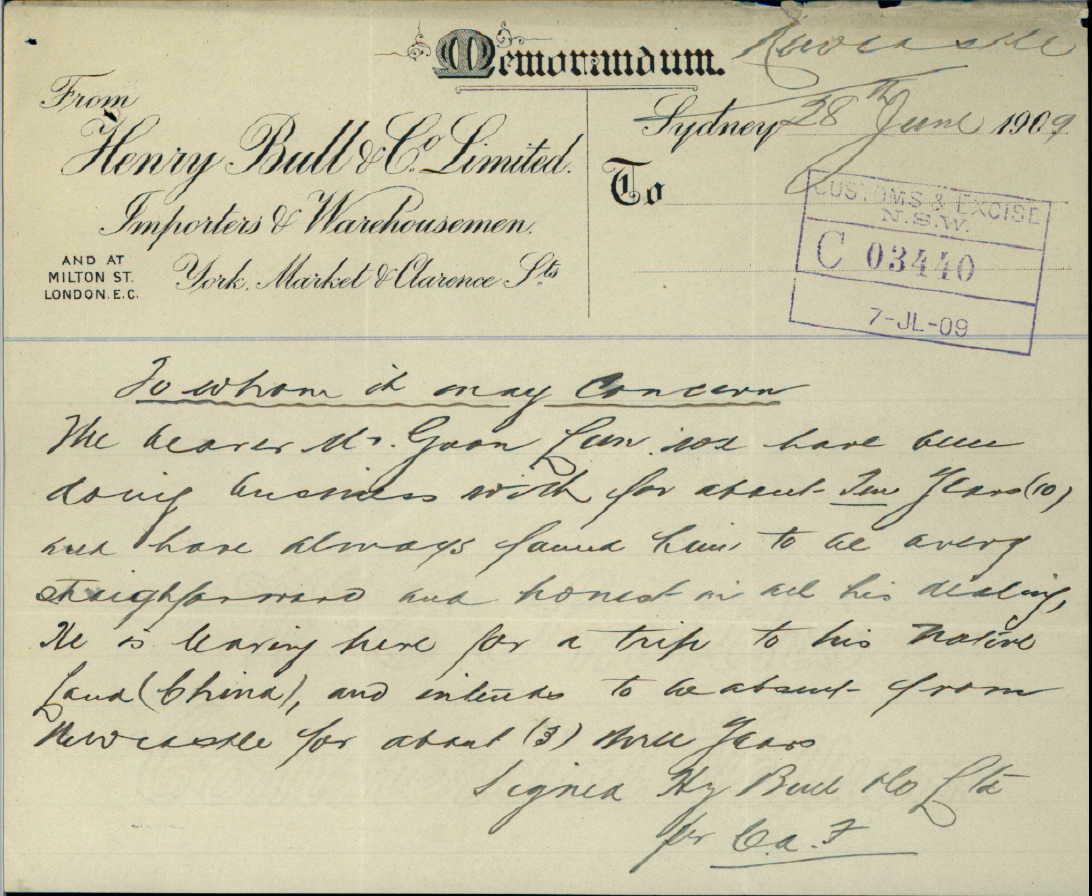 Memorandum.
Newcastle
From
Sydney 28th June 1909
Henry Bull & Co. Limited.
To
Importers & Warehousemen.
AND AT
MILTON ST.
LONDON. E.C.
York, Market & Clarence Sts
CUSTOMS & EXCISE
N.S.W.
C 03440
7-JL-09
To whom it may Concern
The bearer Mr. Goon Lun. we have been
doing business with for about Ten Years (10)
and have always found him to be a very
straighforward and honest in all his dealing,
He is leaving here for a trip to his Native
Land (China), and intends to be absent from
Newcastle for about (3) three Years
Signed Hy Bull & Co Ltd
for C.a.F